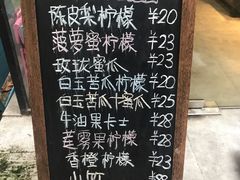 陈皮梨柠檬 ¥20
菠萝蜜柠檬 ¥23
玫珑蜜瓜 ¥23
白玉苦瓜柠檬 ¥20
白玉苦瓜+蜜瓜 ¥25
牛油果卡士 ¥28
莲雾果柠檬 ¥28
香橙柠檬 ¥23